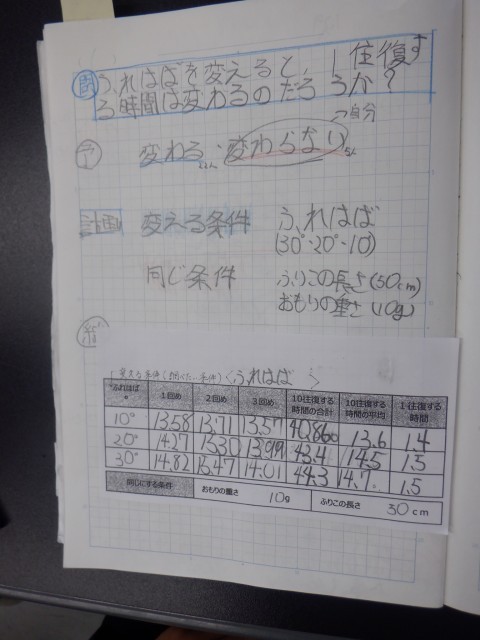 問 ふれはばを変えると、1往復す
る時間は変わるのだろうか?
→自分
予 変わる・変わらない
計画 変える条件 ふれはば
(30°・20°・10°)
同じ条件 ふりこの長さ(30cm)
おもりの重さ(10g)
結
<ふれはば>
ふれはば 1回め 2回め 3回め 10往復する時間の合計 10往復する時間の平均 1往復する時間
10° 13.58 13.71 13.57 13.6 1.4
20° 43.4 14.5 1.5
30° 14.82 14.01 44.3 14.7 1.5
同じにする条件 おもりの重さ 10g ふりこの長さ 30cm